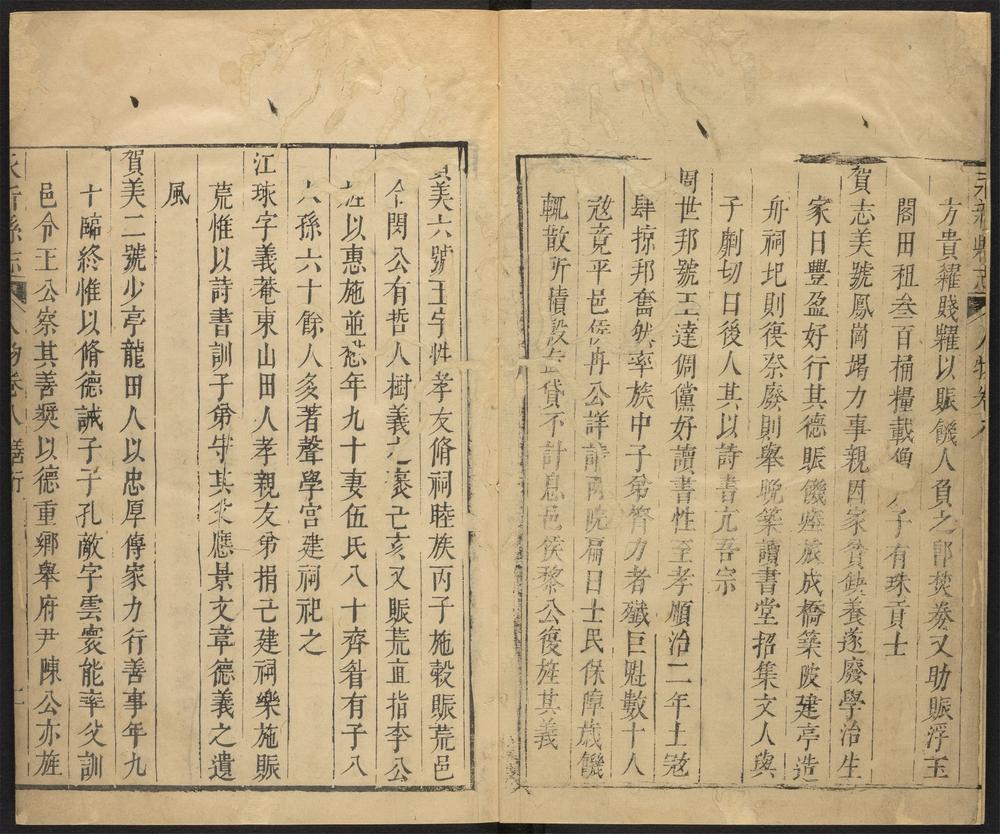 方貴糴賤糶以賑饑人負之即焚券又助賑浮玉
閣田租叁百桶糧載 子有珠貢士
賀志美號鳳崗竭力事親因家貧缺養遂廢學治生
家日豐盈好行其德賑饑瘞旅成橋築陂建亭造
舟祠圮則復祭廢則舉晚築讀書堂招集文人與
子劘切日後人其以詩書亢吾宗
周世邦號玉達倜儻好讀書性至孝順治二年土冦
肆掠邦奮然率族中子弟膂力者殲巨魁數十人
冦竟平邑侯冉公詳請兩院扁曰士民保障歲饑
輒散所積穀 貸不計息邑侯黎公復旌其義
美六號玉宇性孝友脩祠睦族丙子施穀賑荒邑
令閔公有哲人樹義之褒己亥又賑荒直指李公
旌以惠施並 年九十妻伍氏八十齊眉有子八
人孫六十餘人多著聲學宮建祠祀之
江琢字義菴東山田人孝親友弟捐己建祠樂施賑
荒惟以詩書訓子弟守其 應景文章德義之遺
風
賀美二號少亭龍田人以忠厚傳家力行善事年九
十臨終惟以脩德誡子子孔敵字雲寰能率父訓
邑令王公察其善奬以德重鄉舉府尹陳公亦旌
永新縣志 人物卷八 善行